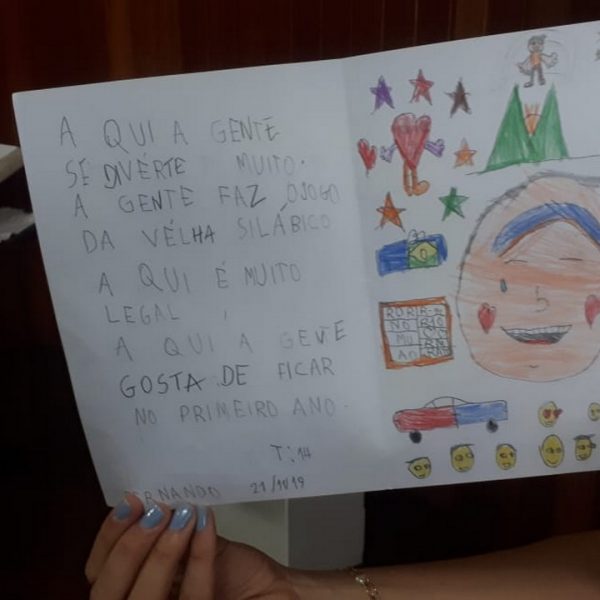 A QUI A GENTE
SE DIVÉRTE MUITO.
A GENTE FAZ O JOGO
DA VÉLHA SILÁBICO
A QUI É MUITO
LEGAL
A QUI A GEVTE
GOSTA DE FICAR
NO PRIMEIRO ANO.
T: 14
21/11/19